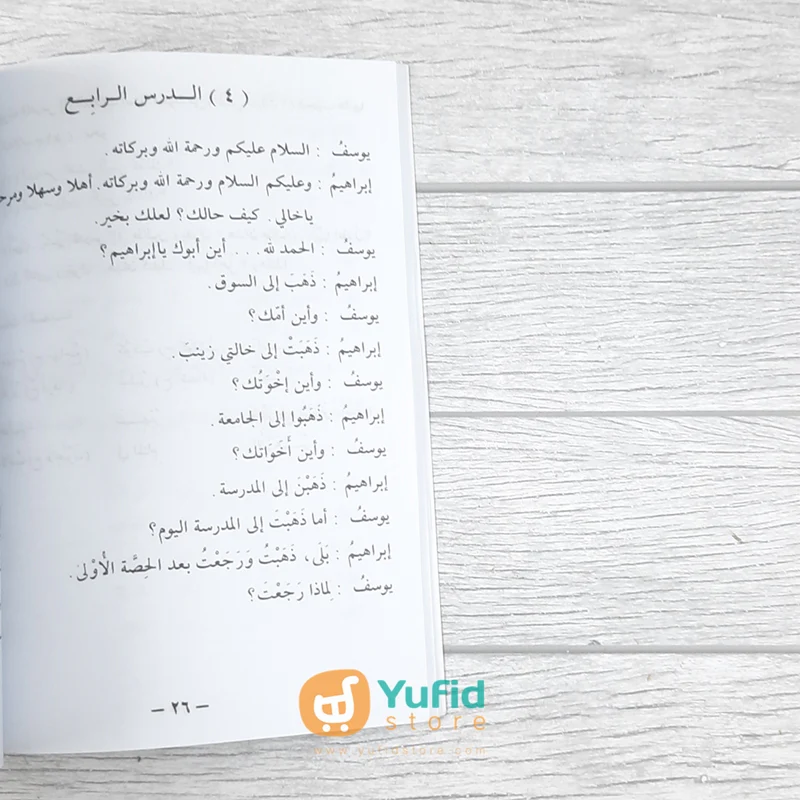 ( ٤ ) الـدرس الـرابِـع
يوسفُ : السلام عليكم ورحمة الله وبركاته.
إبراهيمُ : وعليكم السلام ورحمة الله وبركاته. أهلا وسهلا
ياخالي. كيف حالك؟ لعلك بخير.
يوسفُ : الحمد لله . . . أين أبوك ياإبراهيم؟
إبراهيمُ : ذَهَبَ إلى السوق.
يوسفُ : وأين أمّك؟
إبراهيمُ : ذَهَبَتْ إلى خالتي زينبَ.
يوسفُ : وأين إخْوَتُك؟
إبراهيمُ : ذَهَبُوا إلى الجامعة.
يوسفُ : وأين أَخَوَاتك؟
إبراهيمُ : ذَهَبْنَ إلى المدرسة.
يوسفُ : أما ذَهَبْتَ إلى المدرسة اليوم؟
إبراهيمُ : بَلَى، ذَهَبْتُ وَرَجَعْتُ بعد الحِصَّة الأُوْلىٰ.
يوسفُ : لِماذا رَجَعْتَ؟
– ٢٦ –
Yufid
store
www.yufidstore.com